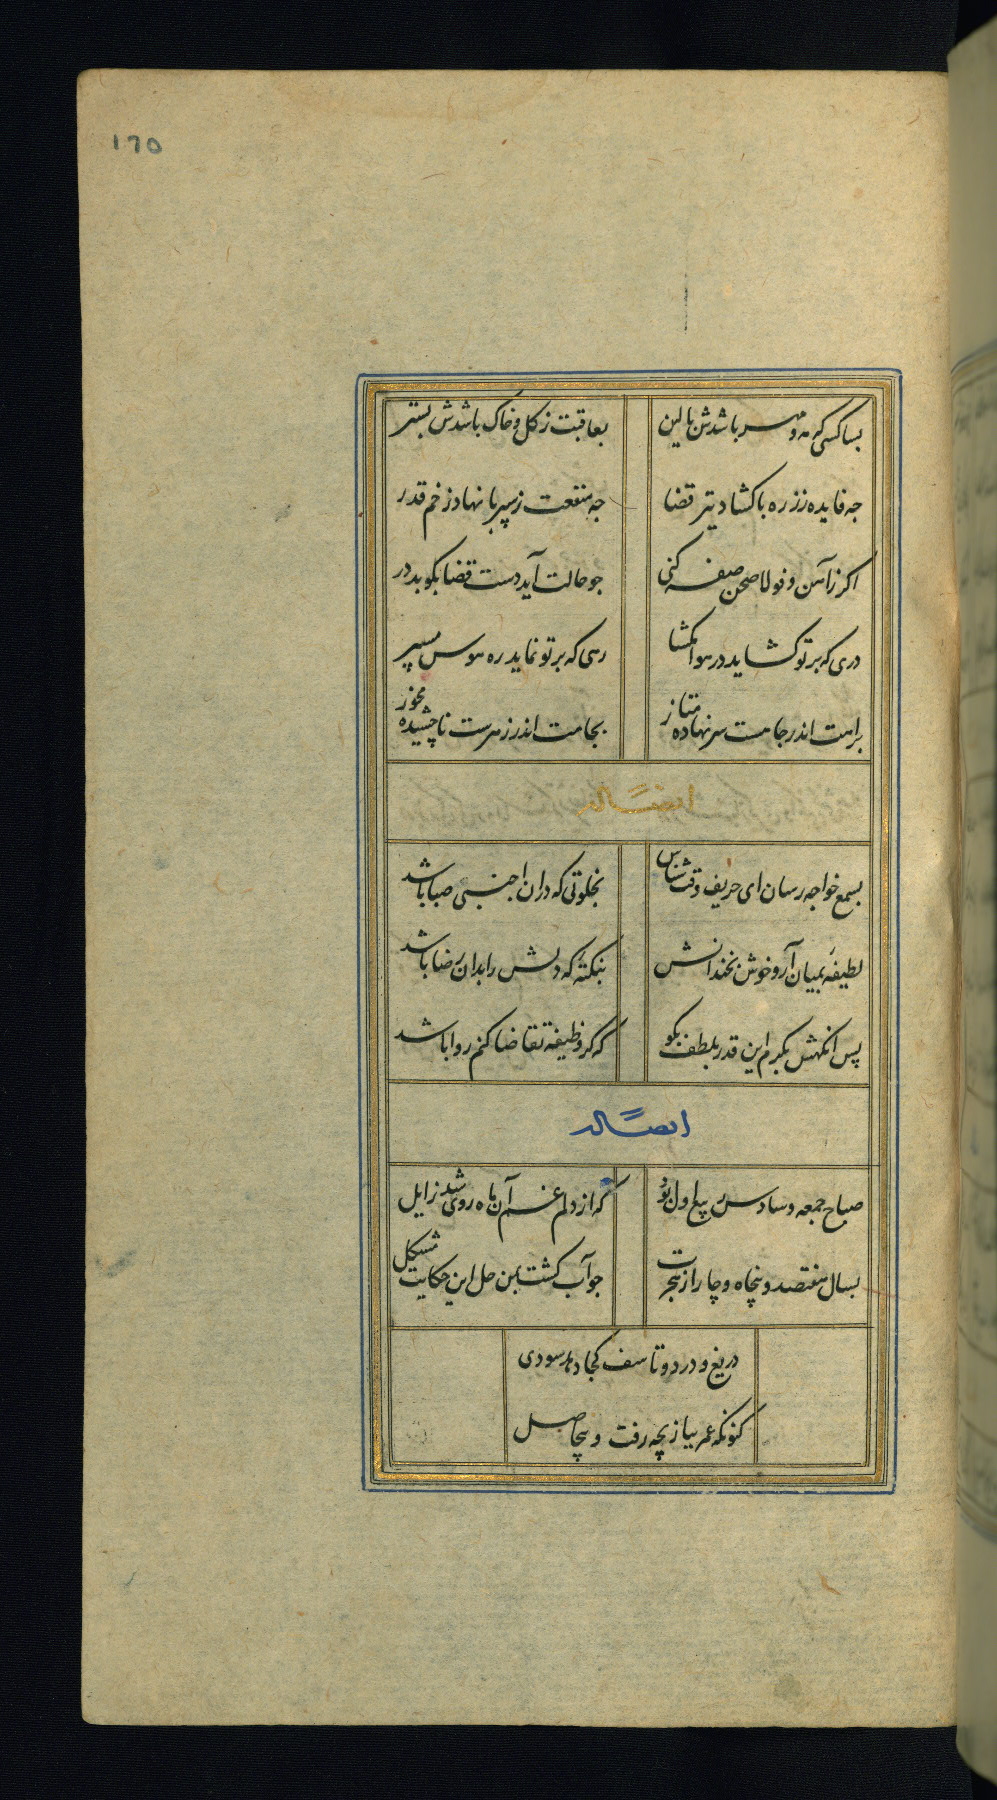 170
بسا کسی که مه و مهر باشدش بالین
بعاقبت ز کل و خاک باشدش بستر
جه فایده ز زره با کشاد تیر قضا
جه منفعت ز سپر با نهاد زخم قدر
اکر ز آهن و فولاد صحن صفه کنی
جو حالت آید دست قضا بکوبد در
دری که بر تو کشاید در هوا مکشا
رهی که بر تو نماید ره هوس مسپر
براهت اندر جاهست سر نهاده متاز
بجامت اندر زهرست ناچشیده مخور
ایضًا له
بسمع خواجه رسان ای حریف وقت شناس
بخلوتی که دران اجنبی صبا باشد
لطیفهٔ بمیان آر و خوش بخندانش
بنکتهٔ که دلش را بدان رضا باشد
پس انکهش بکرم این قدر بلطف بکو
که کر وظیفه تقاضا کنم روا باشد
ایضًا له
صباح جمعه و سادس ربیع اول بود
که از دلم غم آن ماه روی شد زایل
بسال هفتصد و پنجاه و چار از هجرت
جو آب کشت بمن حل این حکایت مشکل
دریغ و درد و تاسف کجا دهد سودی
کنونکه عمر ببازیچه رفت و بیحاصل